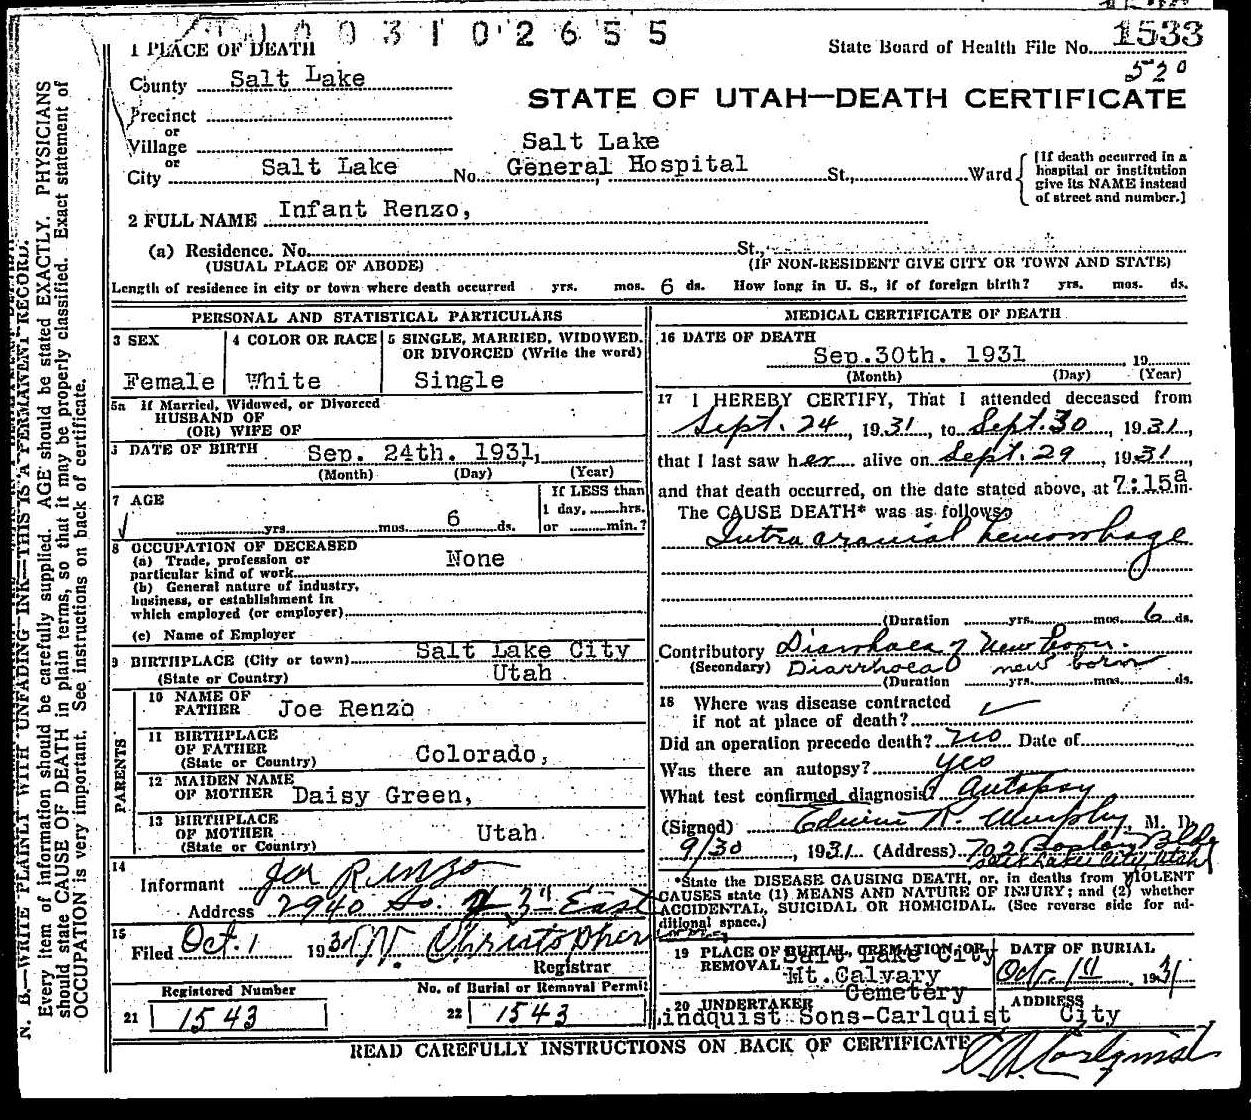 0 0 3 1 0 2 6 5 5
1 PLACE OF DEATH
State Board of Health File No. 1533
520
County Salt Lake
STATE OF UTAH—DEATH CERTIFICATE
Precinct
or
Village
Salt Lake
or
City Salt Lake No. General Hospital St., Ward
[If death occurred in a
hospital or institution
give its NAME instead
of street and number.]
2 FULL NAME Infant Renzo,
(a) Residence. No. St.,
(USUAL PLACE OF ABODE) (IF NON-RESIDENT GIVE CITY OR TOWN AND STATE)
Length of residence in city or town where death occurred yrs. mos. 6 ds. How long in U. S., if of foreign birth? yrs. mos. ds.
PERSONAL AND STATISTICAL PARTICULARS
3 SEX
Female
4 COLOR OR RACE
White
5 SINGLE, MARRIED, WIDOWED,
OR DIVORCED (Write the word)
Single
5a If Married, Widowed, or Divorced
HUSBAND OF
(OR) WIFE OF
DATE OF BIRTH Sep. 24th. 1931,
(Month) (Day) (Year)
7 AGE
yrs. mos. 6 ds.
If LESS than
1 day, hrs.
or min.?
8 OCCUPATION OF DECEASED
(a) Trade, profession or
particular kind of work None
(b) General nature of industry,
business, or establishment in
which employed (or employer)
(c) Name of Employer
9 BIRTHPLACE (City or town) Salt Lake City
(State or Country) Utah
PARENTS
10 NAME OF
FATHER Joe Renzo
11 BIRTHPLACE
OF FATHER
(State or Country) Colorado,
12 MAIDEN NAME
OF MOTHER Daisy Green,
13 BIRTHPLACE
OF MOTHER
(State or Country) Utah
14
Informant Joe Renzo
Address 2940 So. 3" East
15
Filed Oct. 1 1931 W. Christopher
Registrar
Registered Number
21 1543
No. of Burial or Removal Permit
22 1543
MEDICAL CERTIFICATE OF DEATH
16 DATE OF DEATH
Sep.30th. 1931 19
(Month) (Day) (Year)
17 I HEREBY CERTIFY, That I attended deceased from
Sept. 24, 1931, to Sept. 30, 1931,
that I last saw her alive on Sept. 29, 1931,
and that death occurred, on the date stated above, at 7:15a m.
The CAUSE DEATH* was as follows:
Intracranial hemorrhage
(Duration yrs. mos. 6 ds.
Contributory Diarrhoea of New born.
(Secondary) Diarrhoea new born
(Duration yrs. mos. ds.
18 Where was disease contracted
if not at place of death?
Did an operation precede death? no Date of
Was there an autopsy? yes
What test confirmed diagnosis? Autopsy
(Signed) Edwin R. Murphy, M. D.
9/30, 1931 (Address) 702 Boston Bldg
Salt Lake City Utah
*State the DISEASE CAUSING DEATH, or, in deaths from VIOLENT
CAUSES state (1) MEANS AND NATURE OF INJURY; and (2) whether
ACCIDENTAL, SUICIDAL OR HOMICIDAL. (See reverse side for additional space.)
19 PLACE OF BURIAL, CREMATION, OR
REMOVAL Salt Lake City
Mt. Calvary
Cemetery
DATE OF BURIAL
Oct 1 1931
20 UNDERTAKER
Lindquist Sons-Carlquist
ADDRESS
City
READ CAREFULLY INSTRUCTIONS ON BACK OF CERTIFICATE
N. B.—WRITE PLAINLY WITH UNFADING INK—THIS IS A PERMANENT RECORD.
Every item of information should be carefully supplied. AGE should be stated EXACTLY. PHYSICIANS
should state CAUSE OF DEATH in plain terms, so that it may be properly classified. Exact statement of
OCCUPATION is very important. See instructions on back of certificate.